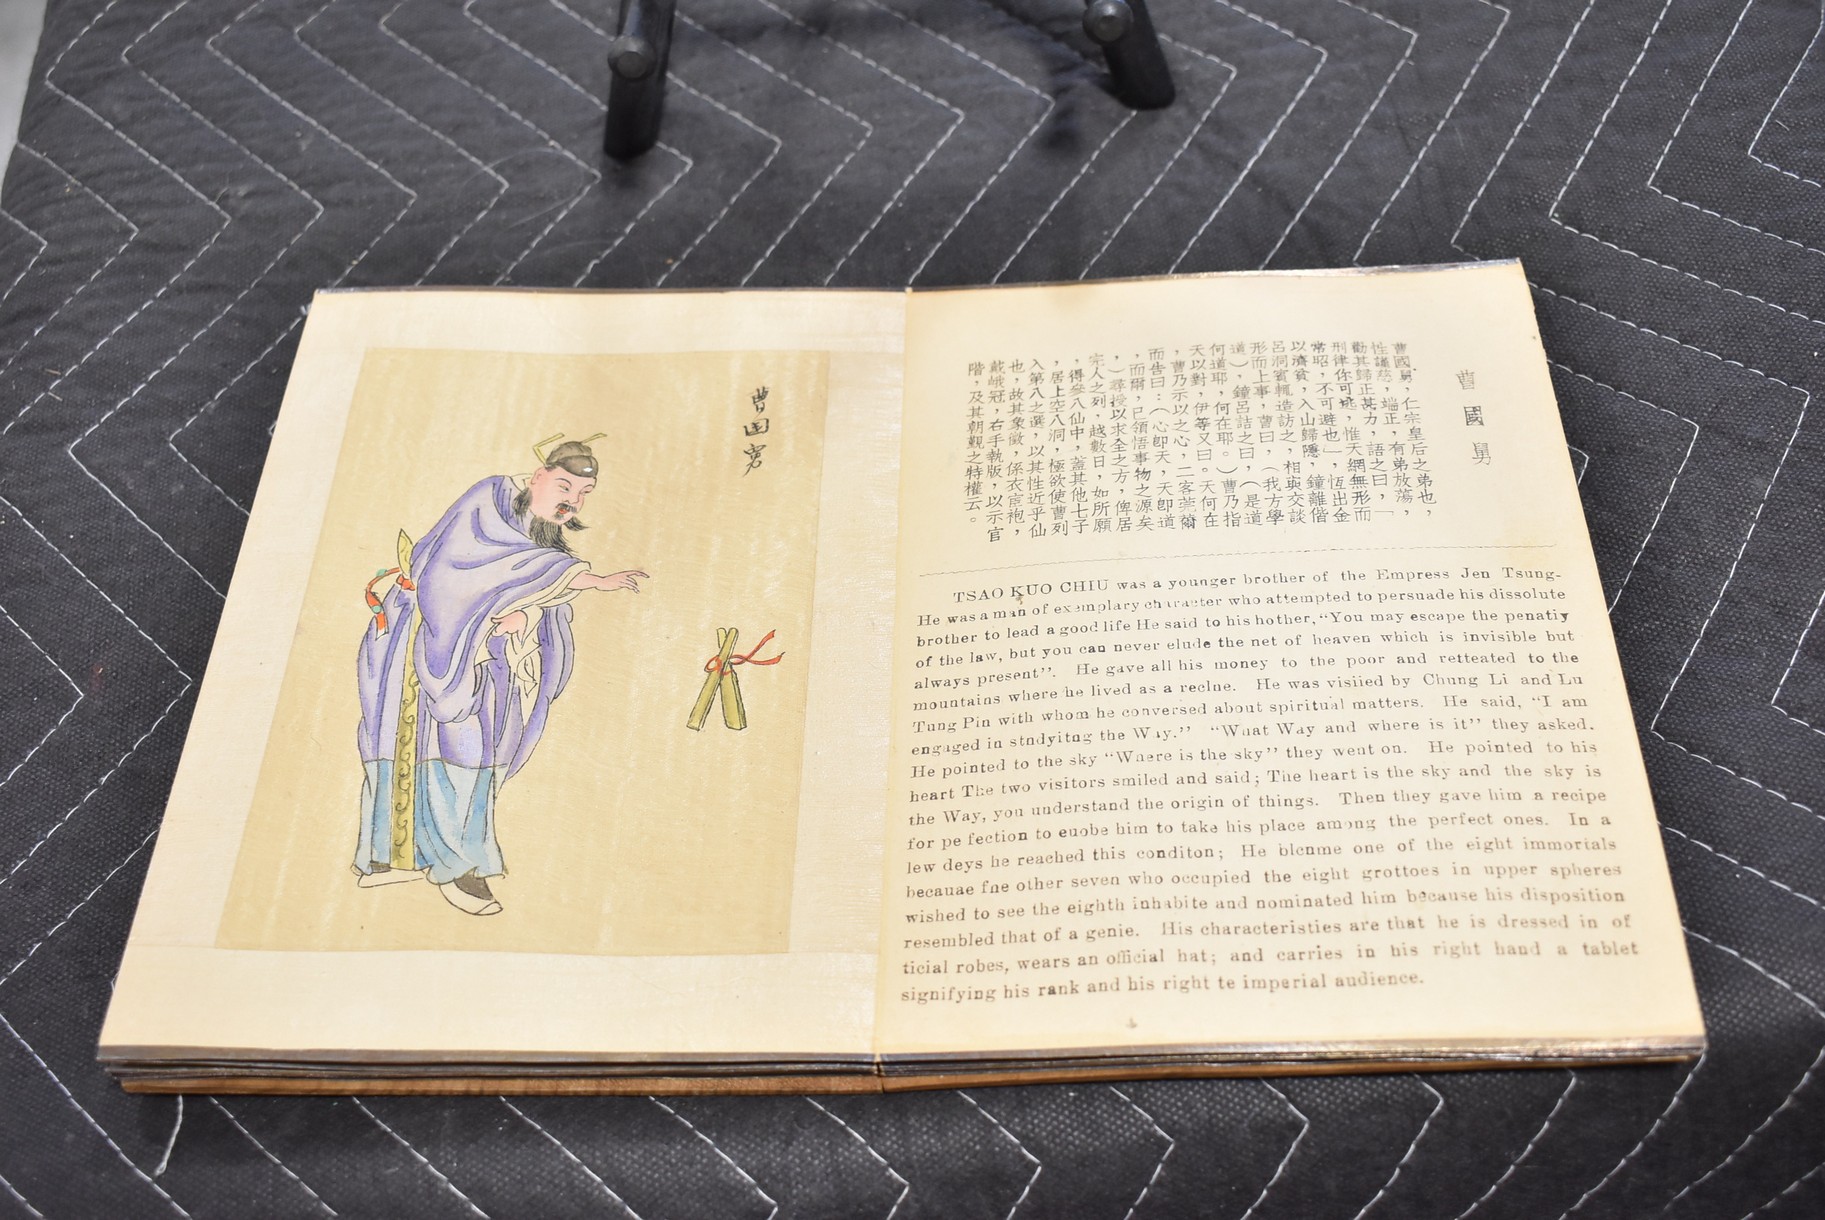 曹国舅
曹國舅
曹國舅，仁宗皇后之弟也，
性謹慈，端正，有弟放蕩，
勸其歸正甚力，語之曰，「
刑律你可逃，惟天網無形而
常昭，不可避也」，恆出金
以濟貧，入山歸隱，鐘離偕
呂洞賓輒造訪之，相與交談
形而上事，曹曰，（我方學
道），鐘呂詰之曰，（是道
何道耶，何在耶。）曹乃指
天以對，伊等又曰。天何在
，曹乃示以之心，二客莞爾
而告曰：（心卽天，天卽道
，而爾，已領悟事物之源矣
，）尋授以求全之方，俾居
宗人之列，越數日，如所願
，得參八仙中，蓋其他七子
，居上空八洞，極欲使曹列
入第八之選，以其性近乎仙
也，故其象徵，係衣官袍，
戴峨冠，右手執版，以示官
階，及其朝覲之特權云。
TSAO KUO CHIU was a younger brother of the Empress Jen Tsung-
He was a man of exemplary character who attempted to persuade his dissolute
brother to lead a good life He said to his hother, "You may escape the penatiy
of the law, but you can never elude the net of heaven which is invisible but
always present". He gave all his money to the poor and retteated to the
mountains where he lived as a reclne. He was visiied by Chung Li and Lu
Tung Pin with whom he conversed about spiritual matters. He said, "I am
engaged in stndyitng the Way." "What Way and where is it" they asked.
He pointed to the sky "Wnere is the sky" they went on. He pointed to his
heart The two visitors smiled and said; The heart is the sky and the sky is
the Way, you understand the origin of things. Then they gave him a recipe
for pe fection to euobe him to take his place among the perfect ones. In a
lew deys he reached this conditon; He blcnme one of the eight immortals
becauae fne other seven who occupied the eight grottoes in upper spheres
wished to see the eighth inhabite and nominated him because his disposition
resembled that of a genie. His characteristies are that he is dressed in of
ticial robes, wears an official hat; and carries in his right hand a tablet
signifying his rank and his right te imperial audience.